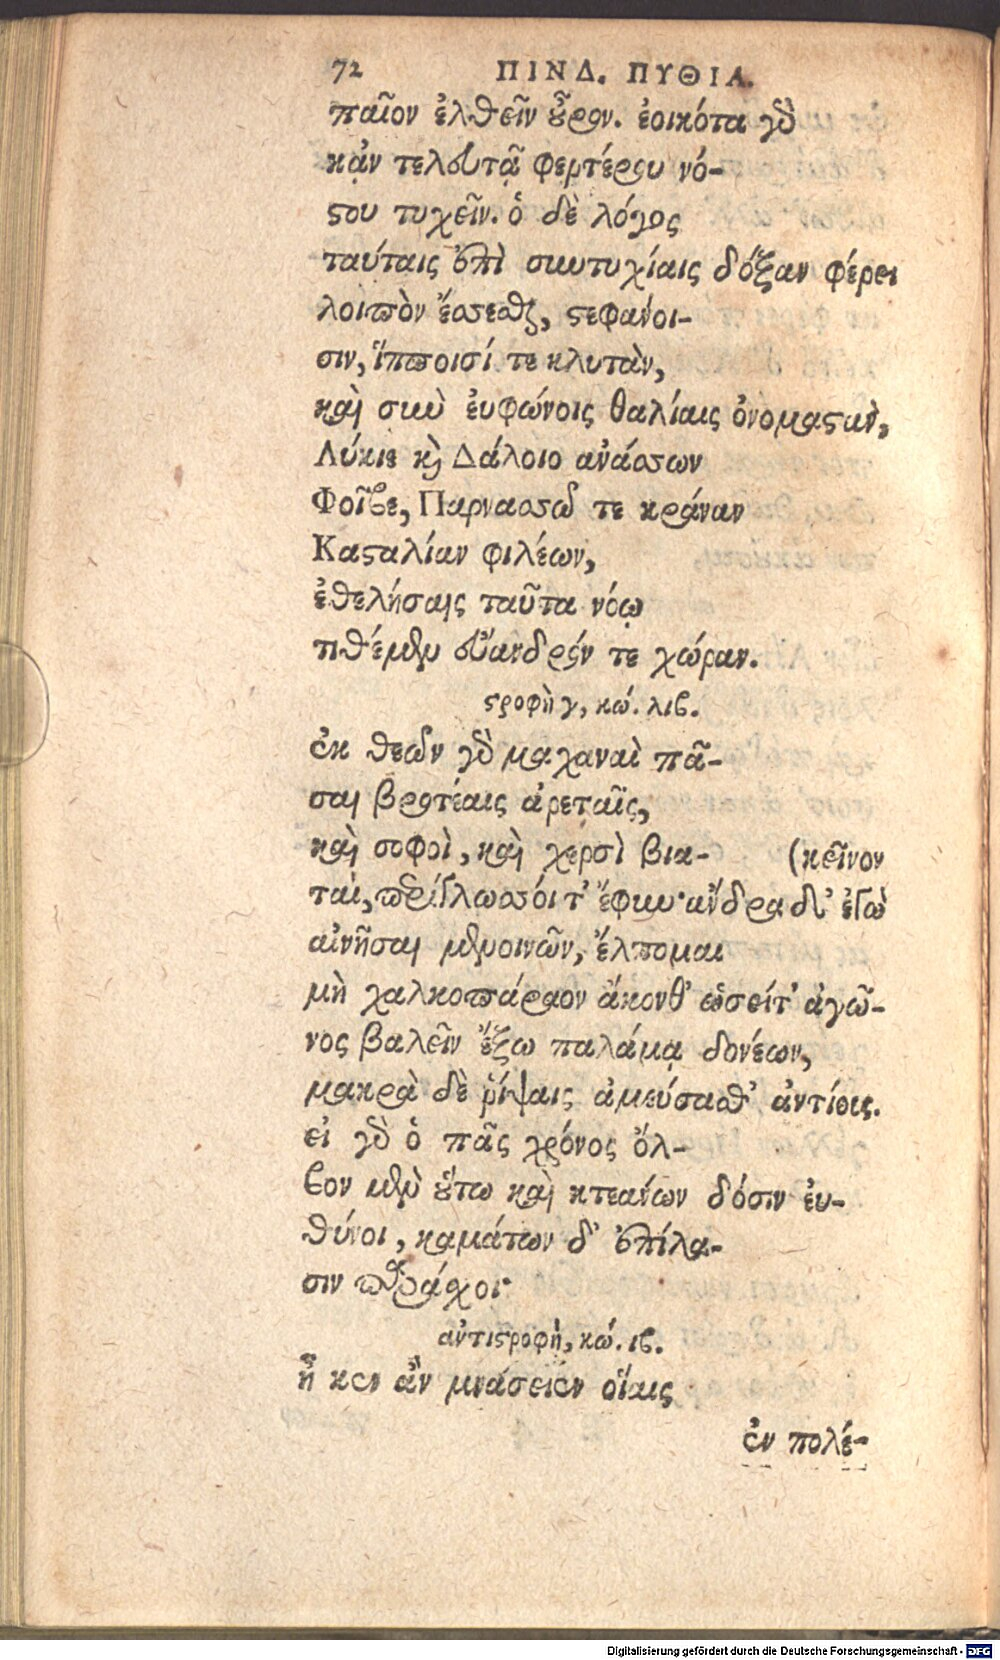 72 ΠΙΝΔ. ΠΥΘΙΑ.
παῖον ἐλθεῖν οὖρον. ἐοικότα γὸ
κᾀν τελευτᾷ φερτέρου νό-
στου τυχεῖν. ὁ δὲ λόγος
ταύταις ἐπὶ συντυχίαις δόξαν φέρει
λοιπὸν ἔσσεσθαι, στεφάνοι-
σιν, ἵπποισί τε κλυτὰν,
καὶ σὺν ἐυφώνοις θαλίαις ὀνομαστὰν,
Λύκιε κὶ Δάλοιο ἀνάσσων
Φοῖβε, Παρνασσῶ τε κράναν
Κασταλίαν φιλέων,
ἐθελήσαις ταῦτα νόῳ
τιθέμεν εὔανδρόν τε χώραν.
στροφὴ γ, κώ. λιβ.
ἐκ θεῶν γὸ μαχαναὶ πᾶ-
σαι βροτέαις ἀρεταῖς,
καὶ σοφοὶ, καὶ χερσὶ βια- (κεῖνον
ταὶ, περίγλωσσοί τ' ἔφυν· ἄνδρα δ' ἐγὼ
αἰνῆσαι μενοινῶν, ἔλπομαι
μὴ χαλκοπάραον ἄκονθ' ὡσείτ' ἀγῶ-
νος βαλεῖν ἔξω παλάμᾳ δονέων,
μακρὰ δὲ ῥίψαις ἀμεύσασθ' ἀντίους.
εἰ γὸ ὁ πᾶς χρόνος ὄλ-
βον μὲν οὕτω καὶ κτεάνων δόσιν ἐυ-
θύνοι, καμάτων δ' ἐπίλα-
σιν παράχοι·
ἀντιστροφὴ, κώ. ιβ.
ἦ κεν ἂν μνάσειεν οἵαις
ἐν πολέ-
Digitalisierung gefördert durch die Deutsche Forschungsgemeinschaft - DFG